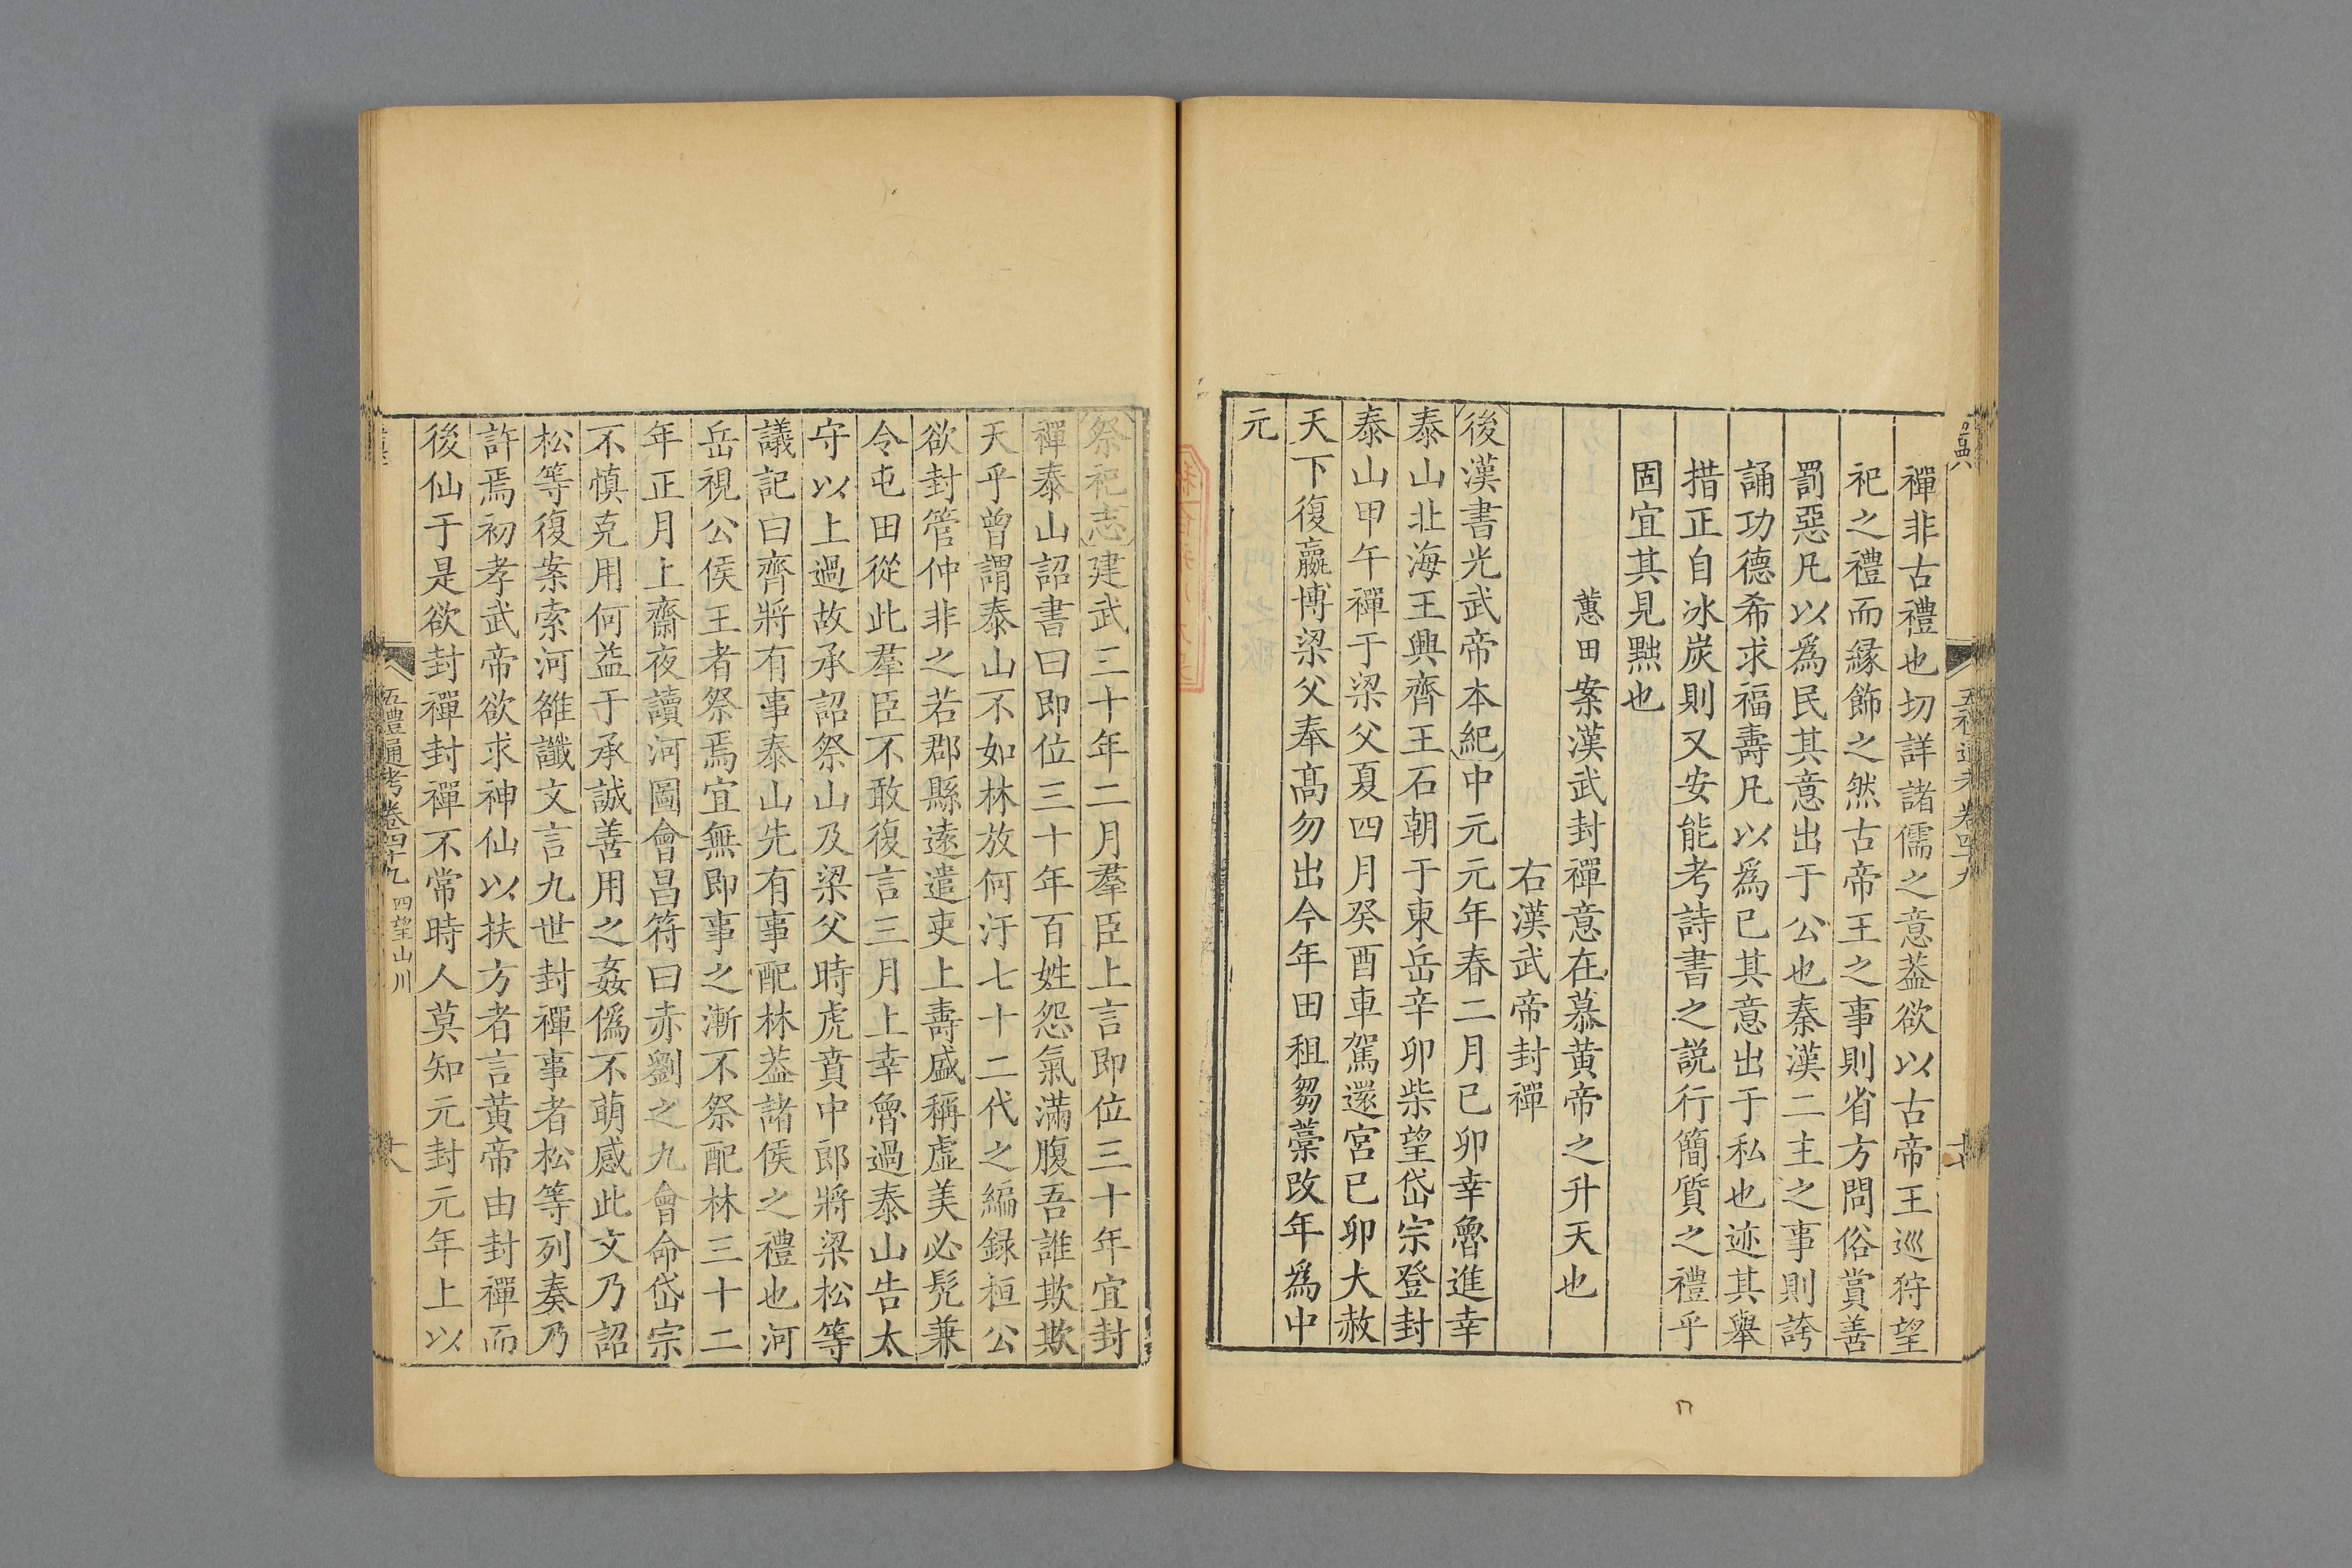 禪非古禮也切詳諸儒之意葢欲以古帝王巡狩望
祀之禮而緣飾之然古帝王之事則省方問俗賞善
罰惡凡以爲民其意出于公也秦漢二主之事則誇
誦功德希求福壽凡以爲已其意出于私也迹其舉
措正自冰炭則又安能考詩書之説行簡質之禮乎
固宜其見黜也
蕙田案漢武封禪意在慕黄帝之升天也
右漢武帝封禪
後漢書光武帝本紀中元元年春二月已卯幸魯進幸
泰山北海王興齊王石朝于東岳辛卯柴望岱宗登封
泰山甲午禪于梁父夏四月癸酉車駕還宮已卯大赦
天下復嬴博梁父奉髙勿出今年田租芻藁改年爲中
元
祭祀志建武三十年二月羣臣上言即位三十年宜封
禪泰山詔書曰即位三十年百姓怨氣滿腹吾誰欺欺
天乎曾謂泰山不如林放何汙七十二代之編録桓公
欲封管仲非之若郡縣逺遣吏上壽盛稱虛美必髠兼
令屯田從此羣臣不敢復言三月上幸魯過泰山告太
守以上過故承詔祭山及梁父時虎賁中郎將梁松等
議記曰齊將有事泰山先有事配林葢諸侯之禮也河
岳視公侯王者祭焉宜無即事之漸不祭配林三十二
年正月上齋夜讀河圖會昌符曰赤劉之九會命岱宗
不慎克用何益于承誠善用之姦偽不萌感此文乃詔
松等復案索河雒讖文言九世封禪事者松等列奏乃
許焉初孝武帝欲求神仙以扶方者言黃帝由封禪而
後仙于是欲封禪封禪不常時人莫知元封元年上以
五禮通考卷四十九 四望山川